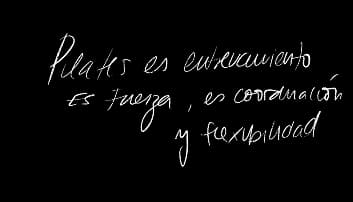 Pilates es entrenamiento
es fuerza, es coordinación
y flexibilidad